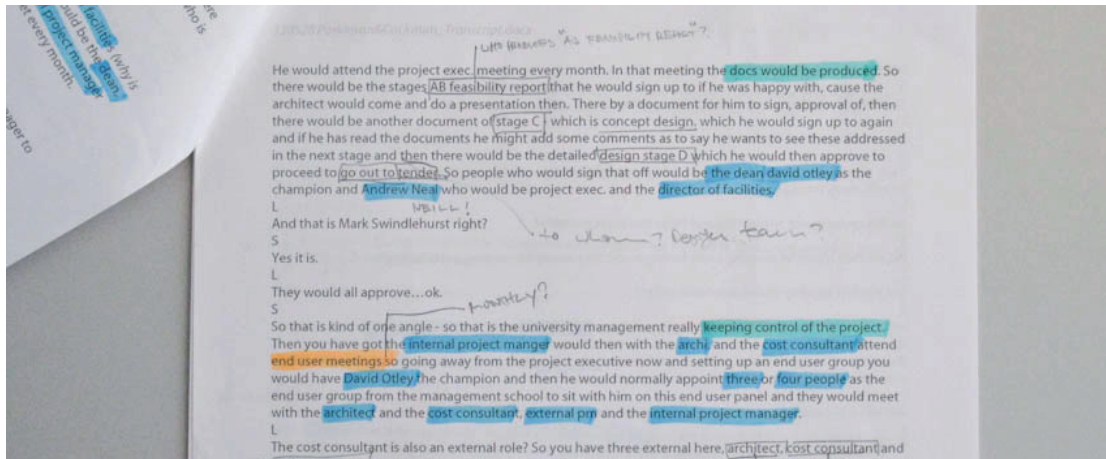 facilities (why is
ould be the dean,
project manager
et every month.
ere
who is
ager to
120528 Parkinson&Cockram_Transcript.docx
WHO HANDLES "AB FEASIBILITY REPORT"?
He would attend the project exec. meeting every month. In that meeting the docs would be produced. So
there would be the stages AB feasibility report that he would sign up to if he was happy with, cause the
architect would come and do a presentation then. There by a document for him to sign, approval of, then
there would be another document of stage C - which is concept design, which he would sign up to again
and if he has read the documents he might add some comments as to say he wants to see these addressed
in the next stage and then there would be the detailed design stage D which he would then approve to
proceed to go out to tender. So people who would sign that off would be the dean david otley as the
champion and Andrew Neal who would be project exec. and the director of facilities.
L
NEILL!
And that is Mark Swindlehurst right?
to whom? Design team?
S
Yes it is.
L
They would all approve...ok.
MONTHLY?
S
So that is kind of one angle - so that is the university management really keeping control of the project.
Then you have got the internal project manger would then with the archi, and the cost consultant attend
end user meetings so going away from the project executive now and setting up an end user group you
would have David Otley the champion and then he would normally appoint three or four people as the
end user group from the management school to sit with him on this end user panel and they would meet
with the architect and the cost consultant, external pm and the internal project manager.
L
The cost consultant is also an external role? So you have three external here, architect, kost consultant and